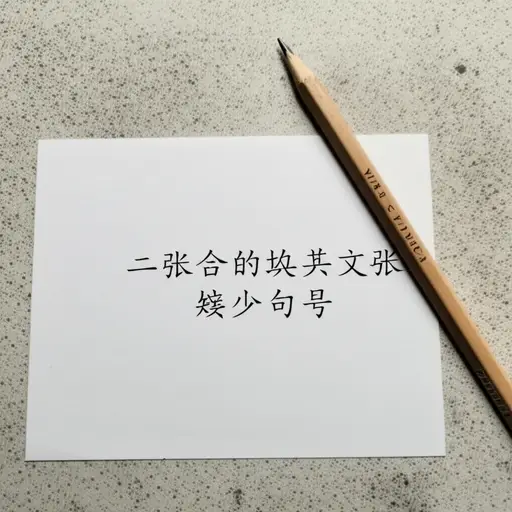 二张合的块共文张
少句号